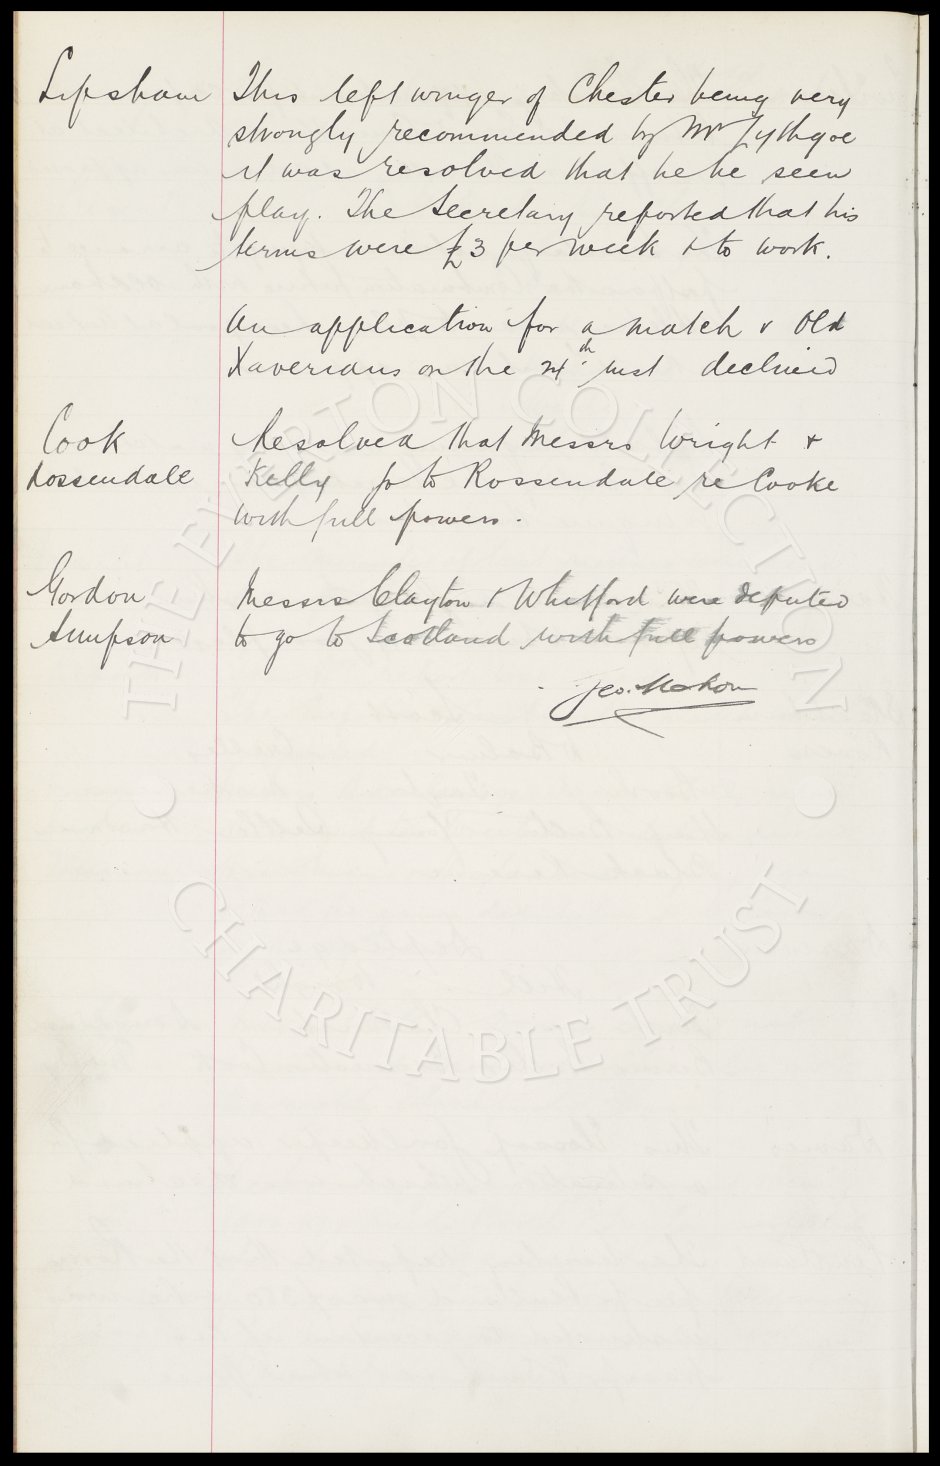 Lipsham This left winger of Chester being very
strongly recommended by Mr Lythgoe
it was resolved that he be seen
play. The Secretary reported that his
terms were £3 per week & to work.
An application for a match v Old
Xaverians on the 24th inst declined
Cook Resolved that Messrs Wright &
Rossendale Kelly go to Rossendale re Cooke
with full powers.
Gordon Messrs Clayton & Whitford were deputed
Simpson to go to Scotland with full powers
Geo. Mahon
THE EVERTON COLLECTION
CHARITABLE TRUST